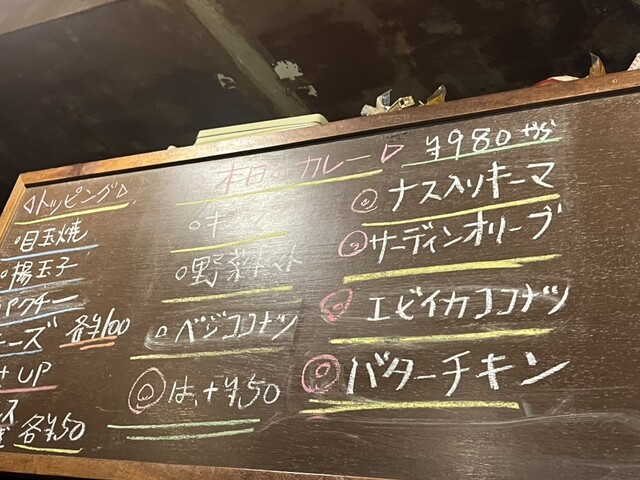 ◁トッピング▷
○目玉焼
○揚玉子
パクチー
チーズ 各¥100
UP
ス
各¥50
本日のカレー▷ ¥980から
○キーマ
○野菜トマト
○ベジココナツ
◎は、+¥150
◎ナス入リキーマ
◎サーディンオリーブ
◎エビイカココナツ
◎バターチキン